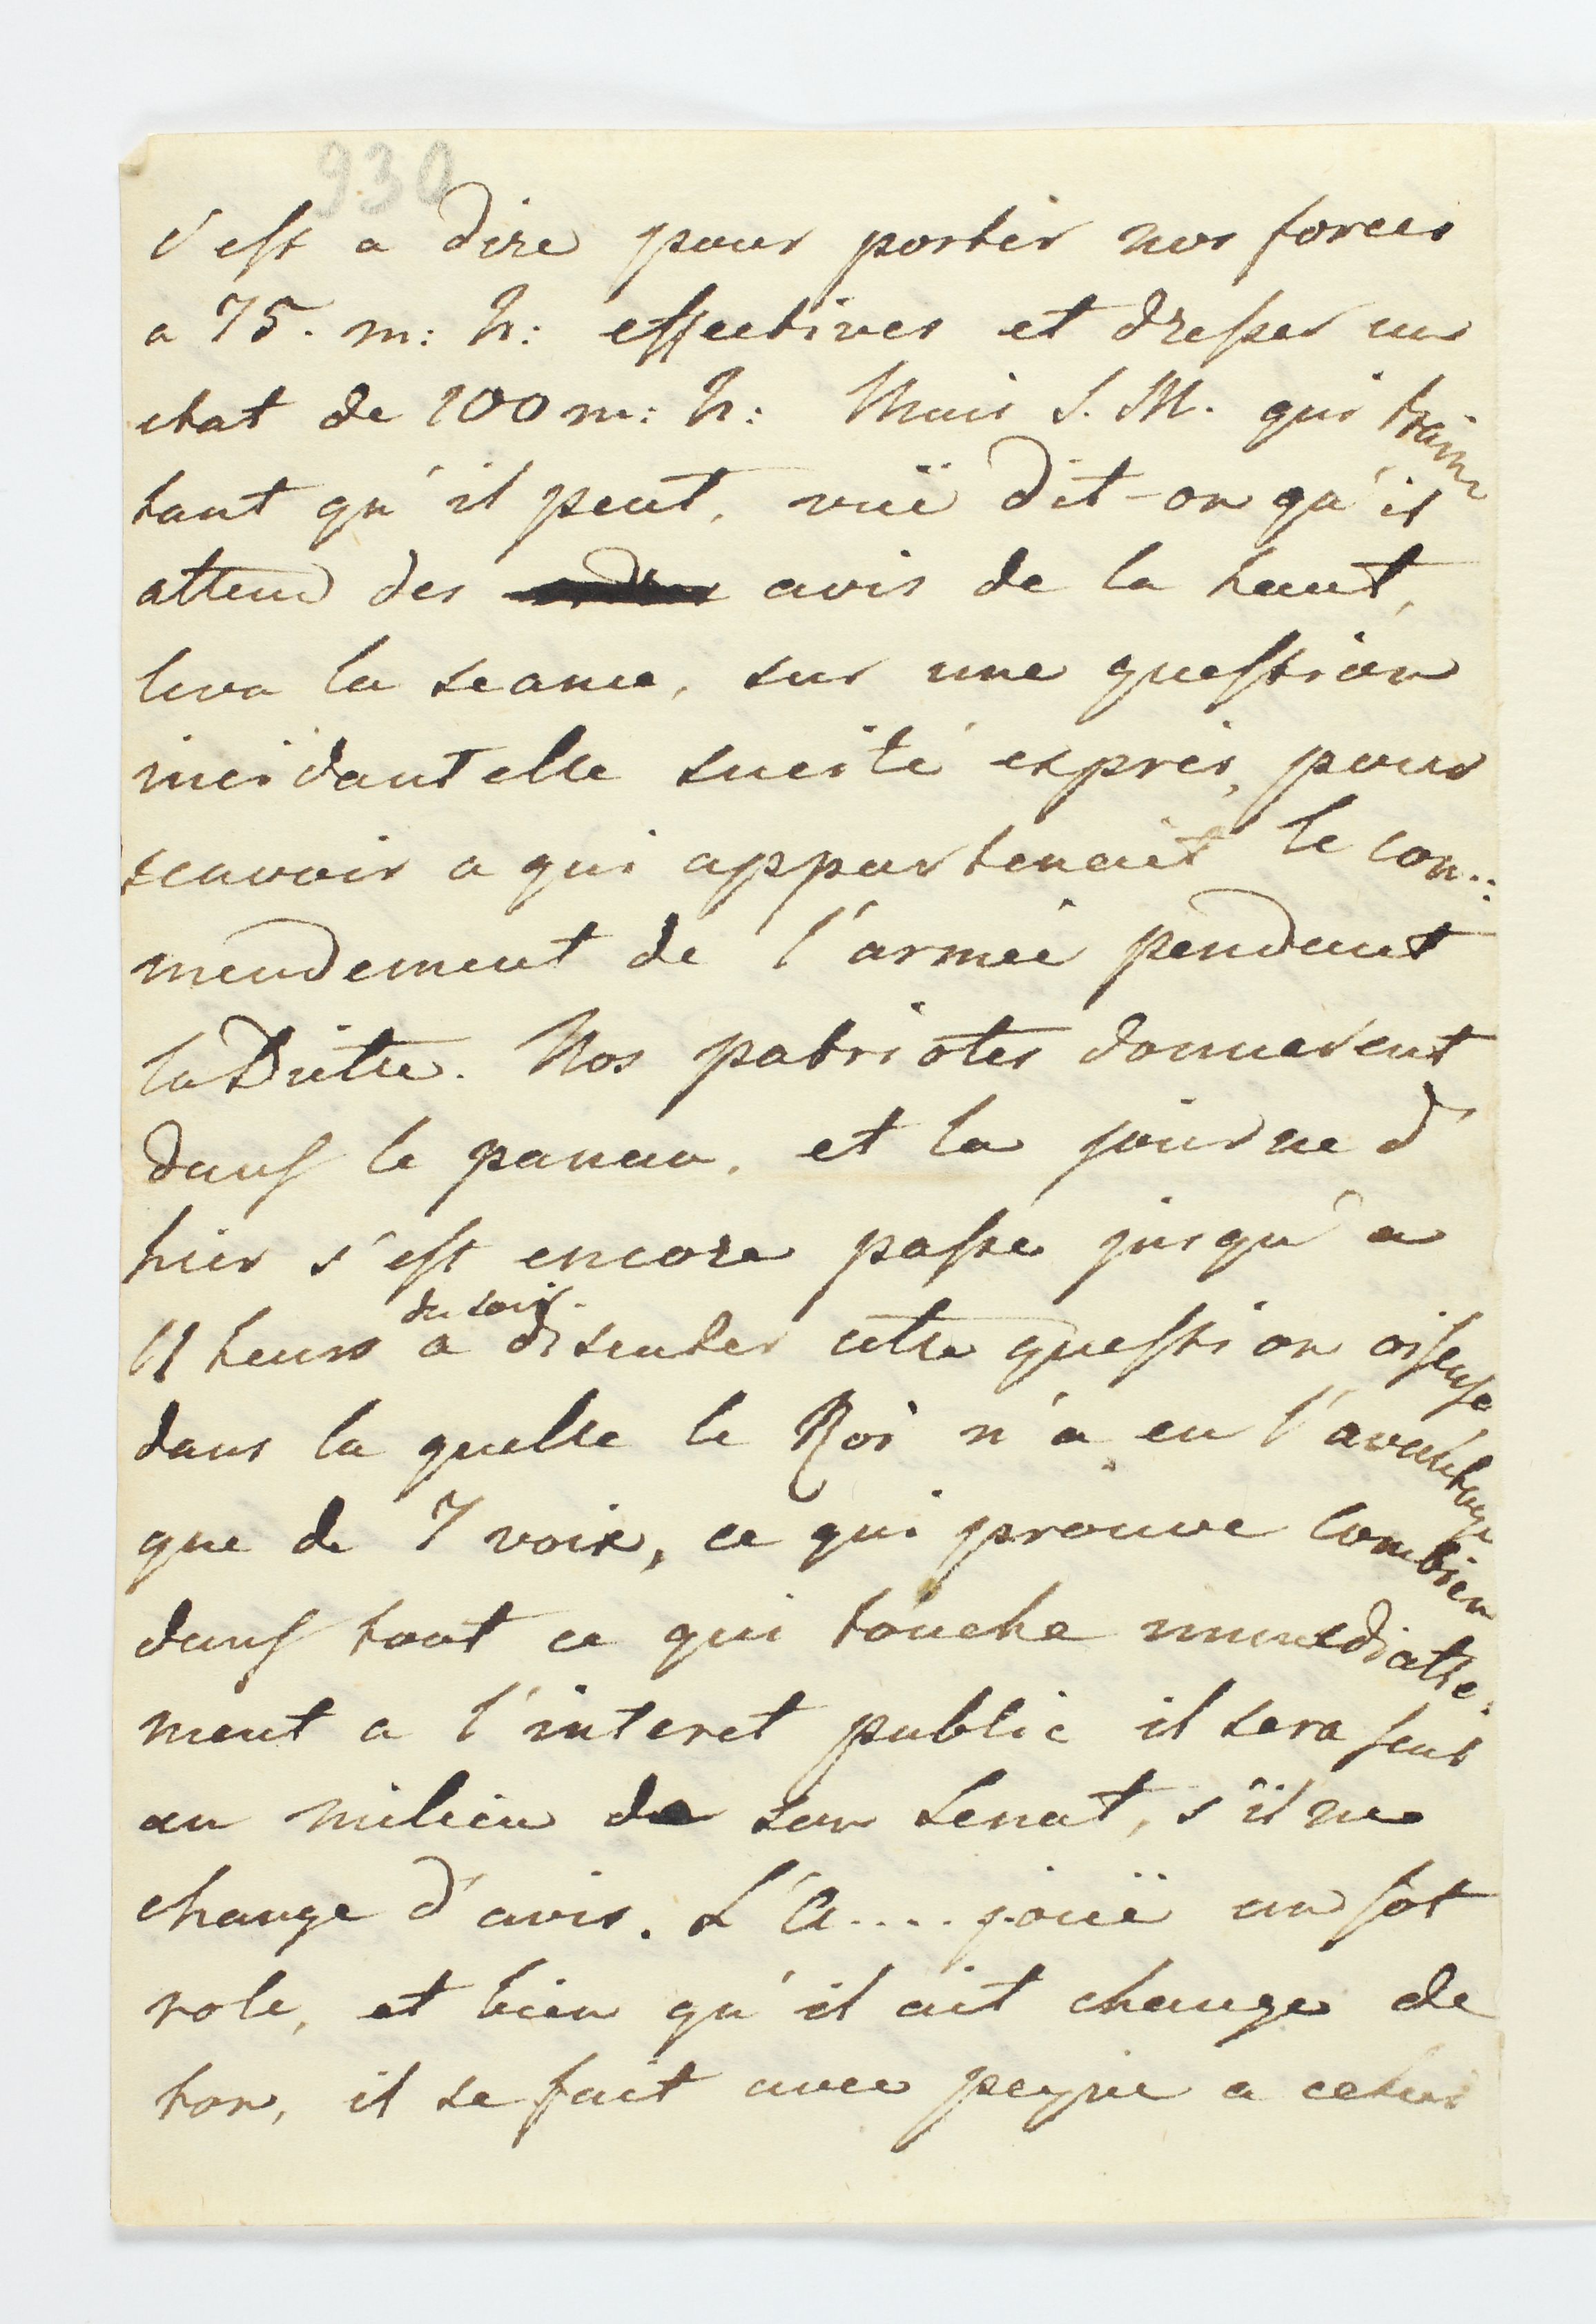 930
c'est a dire pour porter nos forces
a 75. m: h: effectives et dresser un
etat de 100 m: h: Mais S. M. qui traine
tant qu'il peut, vuë dit-on qu'il
attend des avis de la haut,
leva la seance, sur une question
incidantelle sucité exprès, pour
scavoir a qui appartenait le com..
mendement de l'armée pendant
la Diette. Nos patriotes donnerent
dans le panau, et la journe d'
hier s'est encore passe jusqu'a
11 heurs du soir. a discuter cette question oiseuse
dans la quelle le Roi n'a eu l'avantage
que de 7 voix, ce qui prouve combien
dans tout ce qui touche immediatte.
ment a l'interet public il sera seul
au milieu de son Senat, s'il ne
change d'avis. L'A.... jouë un sot
role, et bien qu'il ait change de
ton, il se fait avec peyne a celui